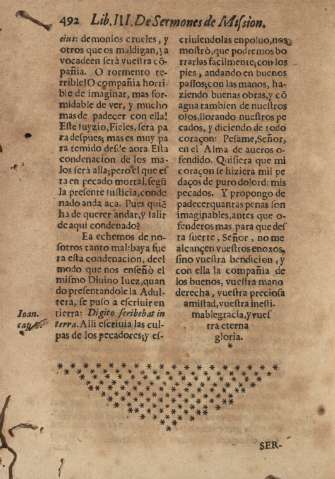 492 Lib. III. De Sermones de Mission.
cius: de demonios crueles, y
otros que os maldigan, ya
vocadeen será vuestra cõ-
pañia. O tormento te-
rrible! O compañia horri-
ble de imaginar, mas for-
midable de ver, y mucho
mas de padecer con ella!
Este Iuyzio, Fieles, sera pa
ra despues; mas es muy pa
ra temido desde aora Esta
condenacion de los ma-
los será alla; pero el que es
ta en pecado mortal, segũ
la presente iusticia, conde
nado anda aca. Pues quiẽ
ha de querer andar, y salir
de aqui condenado?
Ea echemos de no-
sotros tanto mal: baya fue
ra esta condenacion, del
modo que nos enseñò el
mismo Diuino Iuez, quan
do presentandole la Adul-
tera, se puso a escriuir en
tierra: Digito scribebat in
terra. Alli escriuia las cul-
pas de los pecadores; y es-
Ioan.
cap.
criuiendolas en poluo, nos
mostrò, que podremos bo
rrarlas facilmente; con los
pies, andando en buenos
passos; con las manos, ha-
ziendo buenas obras, y cõ
agua tambien de nuestros
ojos, llorando nuestros pe
cados, y diciendo de todo
coraçon: Pesame, Señor,
en el Alma de aueros o-
fendido. Quisiera que mi
coraçon se hiziera mil pe
daços de puro dolor de mis
pecados. Y propongo de
padecer quantas penas son
imaginables, antes que o-
fenderos mas para que des
ta suerte, Señor, no me
alcançen vuestros enoxos,
sino vuestra bendicien, y
con ella la compañia de
los buenos, vuestra mano
derecha, vuestra preciosa
amistad, vuestra inesti-
mable gracia, y vues
tra eterna
gloria.
SER-